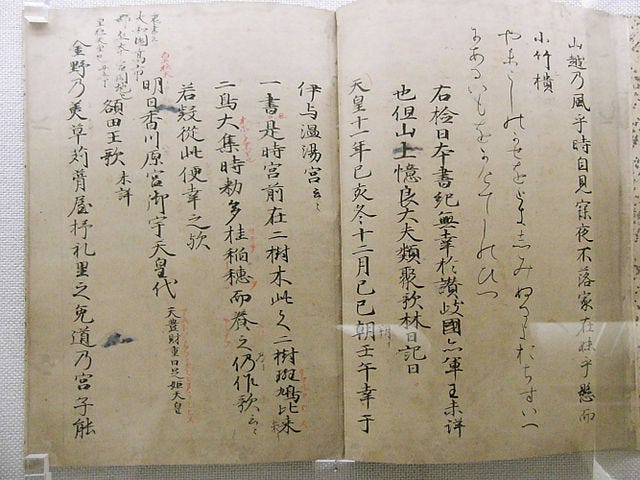 山越乃風乎時自見寐夜不落家在妹乎懸而
小竹樻
やまこしのかせをときしみぬるよおちすいへ
にあるいもをかけてしのひつ
右捡日本書紀無幸於讃岐國亦軍王未詳
也但山上憶良大夫類聚歌林曰記曰
天皇十一年己亥冬十二月己巳朔壬午幸于
伊与温湯宮云々
一書是時宮前在二樹木此之二樹斑鳩比米
二鳥大集時勅多桂稲穂而養之仍作歌云々
若疑從此便幸之歟
明日香川原宮御宇天皇代 天豊財重日足姫天皇
額田王歌 未詳
金野乃美草苅葺屋杼礼里之兎道乃宮子能